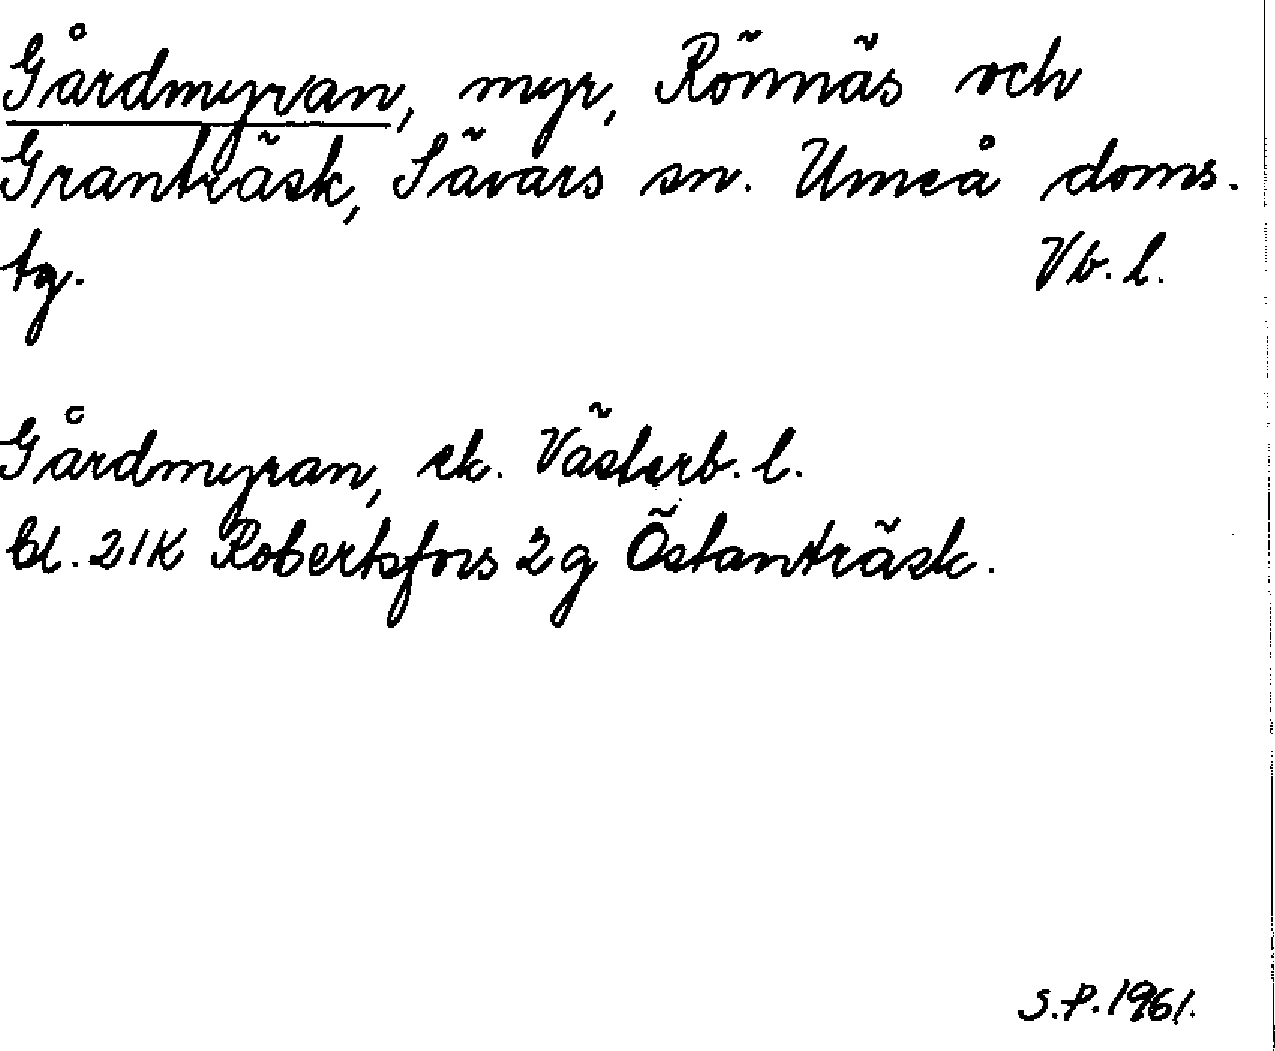 Gårdmyran, myr, Rönnäs och
Granträsk, Sävars sn. Umeå doms.
tg. Vb. l.
Gårdmyran, ek. Västerb. l.
bl. 21K Robertsfors 2g Östanträsk.
S.P. 1961.